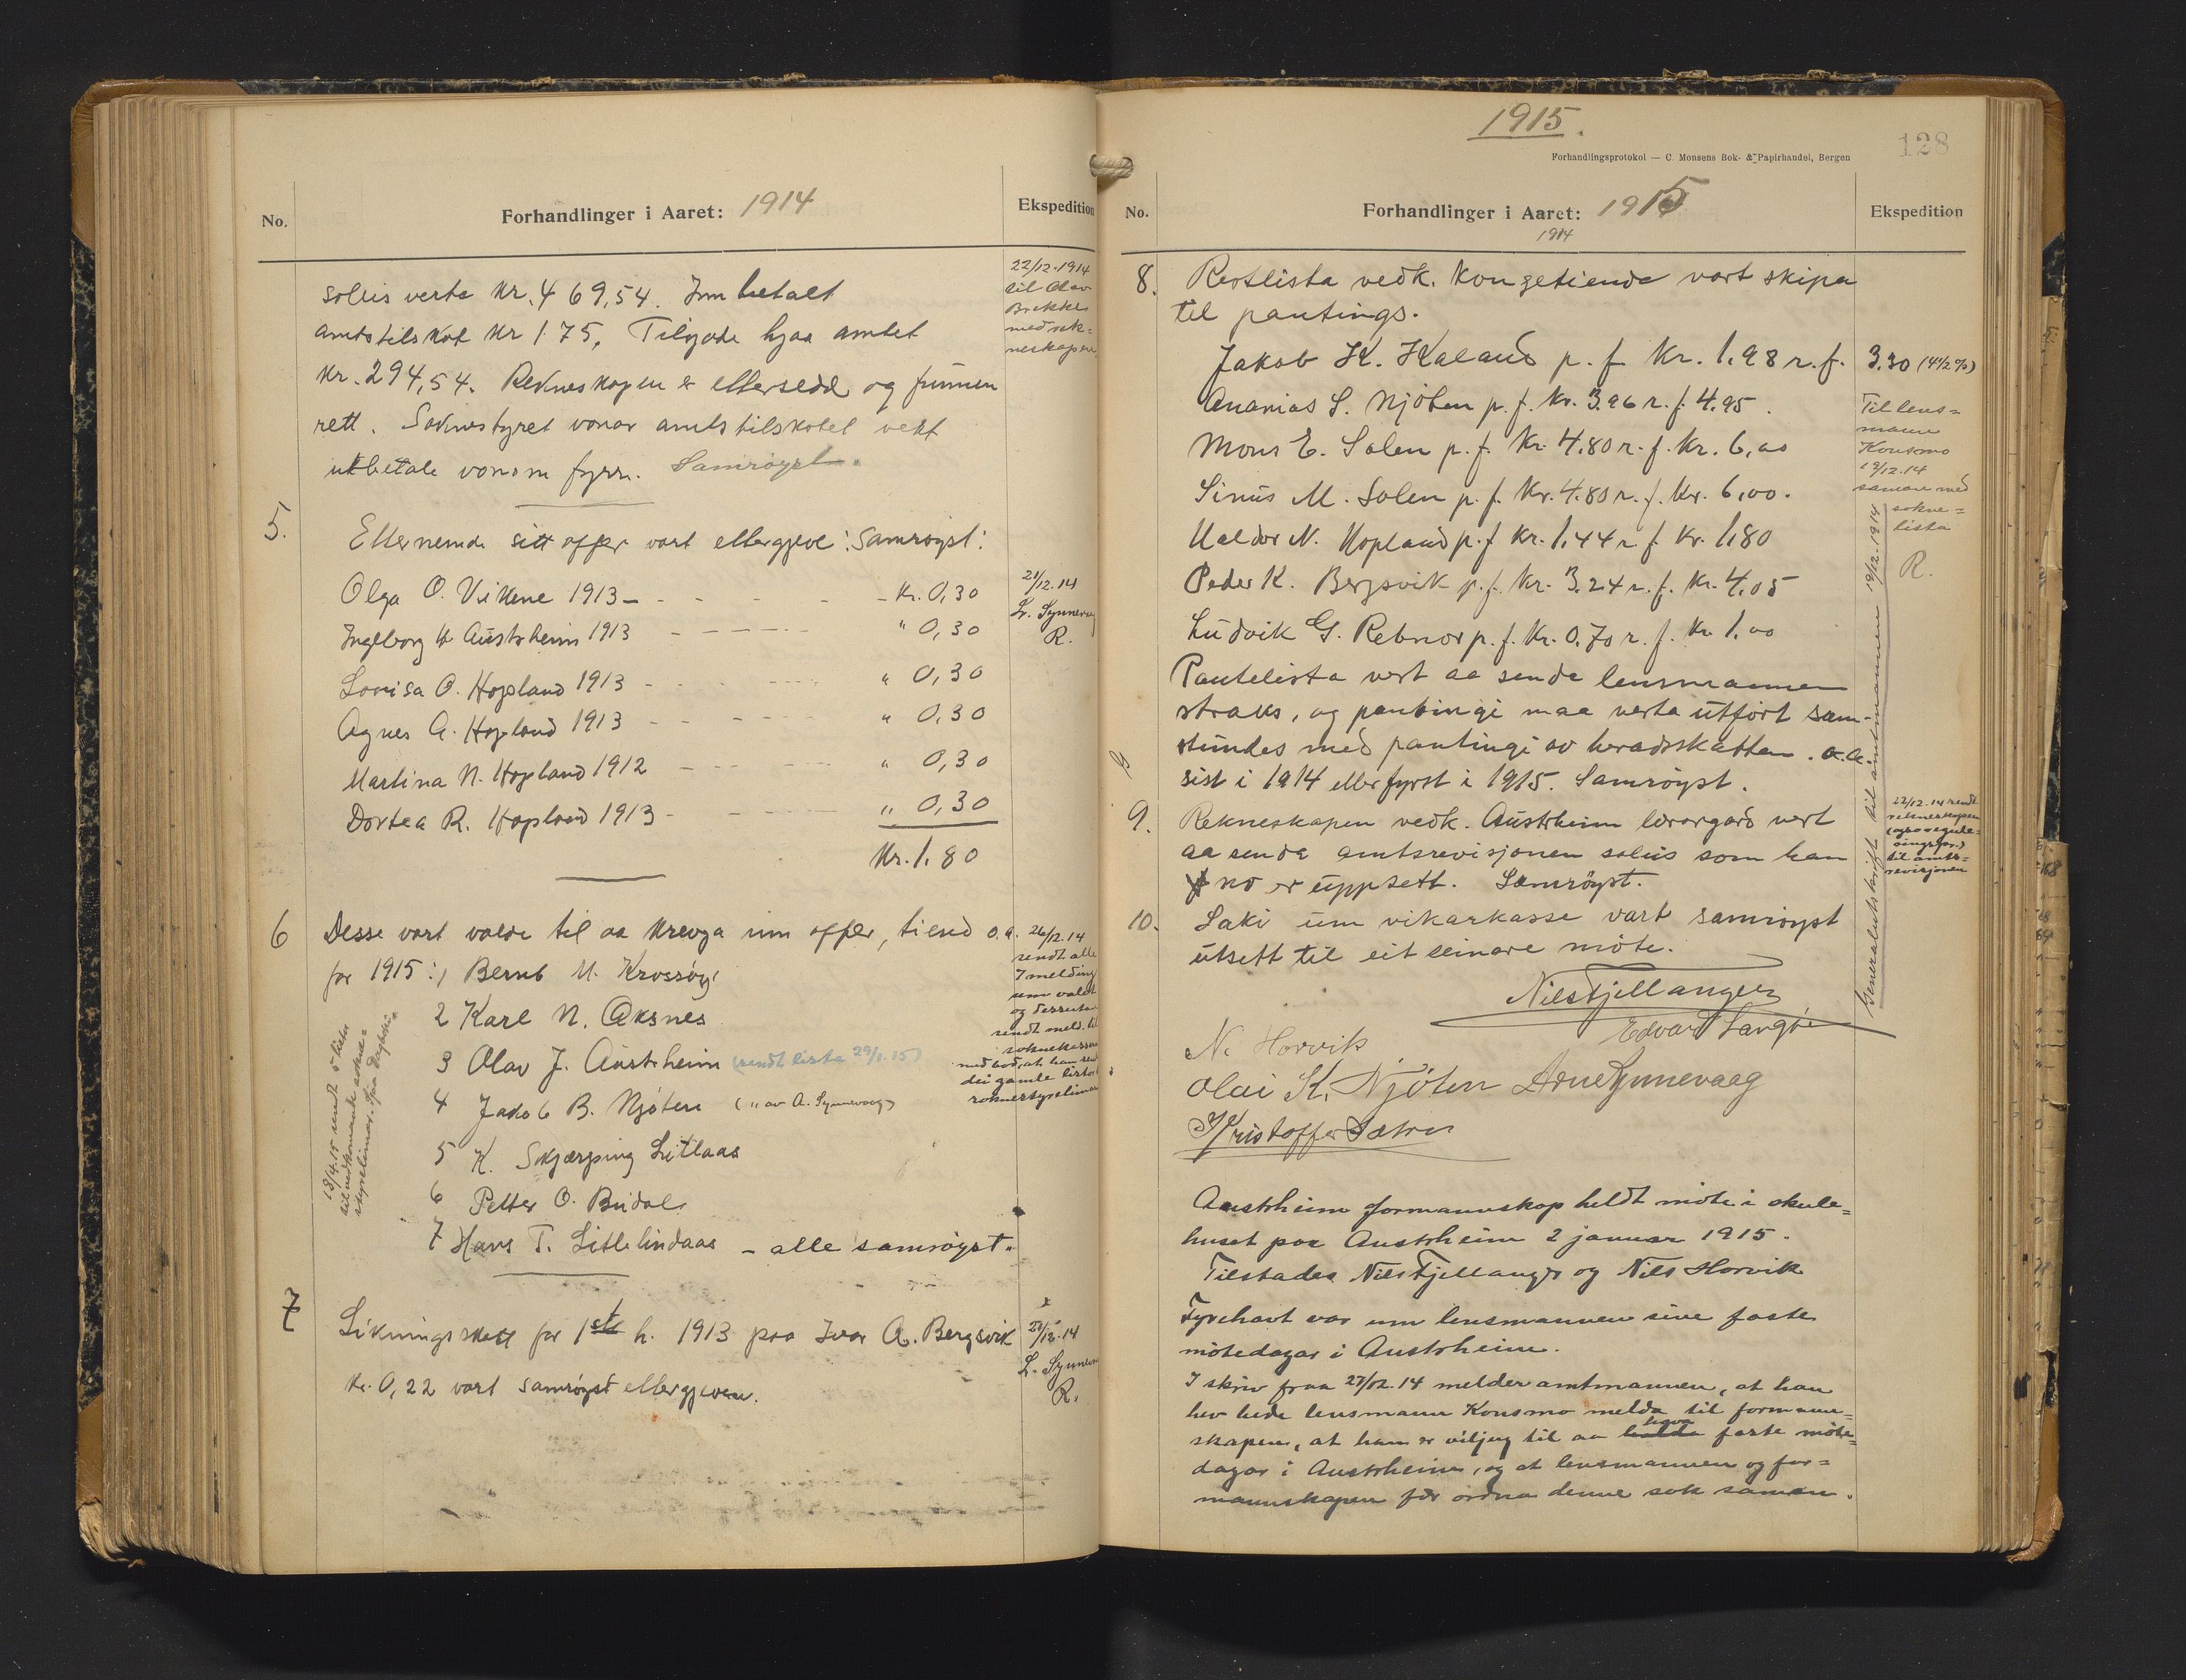 No.
Forhandlinger i Aaret: 1914
Ekspedition
soleis verta Kr. 469,54. Innbetalt
amtstilskot Kr 175, Tilgode hjaa amtet
Kr. 294,54. Rekneskapen er ettersedd og funnen
rett. Soknestyret vonar amtstilskotet vert
utbetale vonom fyrr. Samrøyst.
22/12.1914
til Olav
Brekke
med rek=
neskapen
5.
Etternemde sitt offer vart ettergjeve: Samrøyst:
Olga O. Vikene 1913 - Kr. 0,30
Ingeborg Austrheim 1913 " 0,30
Lovisa O. Hopland 1913 " 0,30
Agnes A. Hopland 1913 " 0,30
Martina N. Hopland 1912 " 0,30
Dortea R. Hopland 1913 " 0,30
Kr. 1.80
21/12.14
L. Synnevaag
R.
6
Desse vart valde til aa krevja inn offer, tiend o.a.
for 1915: 1 Bernt M. Krossøy
2 Karl N. Aksnes
3 Olav J. Austrheim (sendt lista 29/1.15)
4 Jakob B. Njøten (" av A. Synnevaag)
5 K. Skjærping Litlaas
6 Petter O. Budal
7 Hans T. Litlelindaas - alle samrøyst.
26/12.14
sendt alle
7 melding
um valet
og dessutan
sendt meld. til
soknekassera
med bod, at han
dei gamle lister
18/4.15 sendt 5 lister
7
Likningsskatt for 1ste h. 1913 paa Ivar A. Bergsvik
Kr. 0,22 vart samrøyst ettergjeven.
21/12.14
L. Synnev
R.
1915.
128
Forhandlingsprotokol — C. Monsens Bok- & Papirhandel, Bergen
No.
Forhandlinger i Aaret: 1915
1914
Ekspedition
8. Restlista vedk. Kongetiende vart skipa
til pantings.
Jakob K. Kaland p. f. Kr. 1,98 r. f. 3,30 (4 1/2 %)
Ananias S. Njøten p. f. Kr. 3.96 r. f. 4.95.
Mons E. Solen p. f. Kr. 4.80 r. f. Kr. 6,00
Sinus M. Solen p. f. Kr. 4.80 r. f. Kr. 6,00.
Haldor N. Hopland p. f Kr. 1,44 r. f. Kr. 1,80
Peder K. Bergsvik p. f. Kr. 3.24 r. f. Kr. 4,05
Ludvik G. Rebnor p. f. Kr. 0.70 r. f. Kr 1.00
Pantelista vert aa senda lensmannen
straks, og pantingi maa verta utført sam-
stundes med pantingi av heradsskatten. o.a.
sist i 1914 eller fyrst i 1915. Samrøyst.
Til lens=
mann
Konsmo
19/12.14
saman med
sokne=
lista
R.
Generalutskrift til amtmannen 19/12.1914
9. Rekneskapen vedk. Austrheim lærargard vert
aa senda amtsrevisjonen soleis som han
no er uppsett. Samrøyst.
22/12.14 sendt
rekneskapen
til amts=
revisjonen
10. Saki um vikarkasse vart samrøyst
utsett til eit seinare møte.
Nils Fjellanger
Edvard Langøi
N. Horvik
Olai K. Njøten Arne Synnevaag
Kristoffer Sætre
Austrheim formannskap heldt møte i skule=
huset paa Austrheim 2 januar 1915.
Tilstades Nils Fjellanger og Nils Horvik
Fyrehavt var um lensmannen sine faste
møtedagar i Austrheim.
I skriv fraa 27/12.14 melder amtmannen, at han
hev bede lensmann Konsmo melda til formann=
skapen, at han er viljug til aa halda hava faste møte=
dagar i Austrheim, og at lensmannen og for=
mannskapen fær ordna denne sak saman.